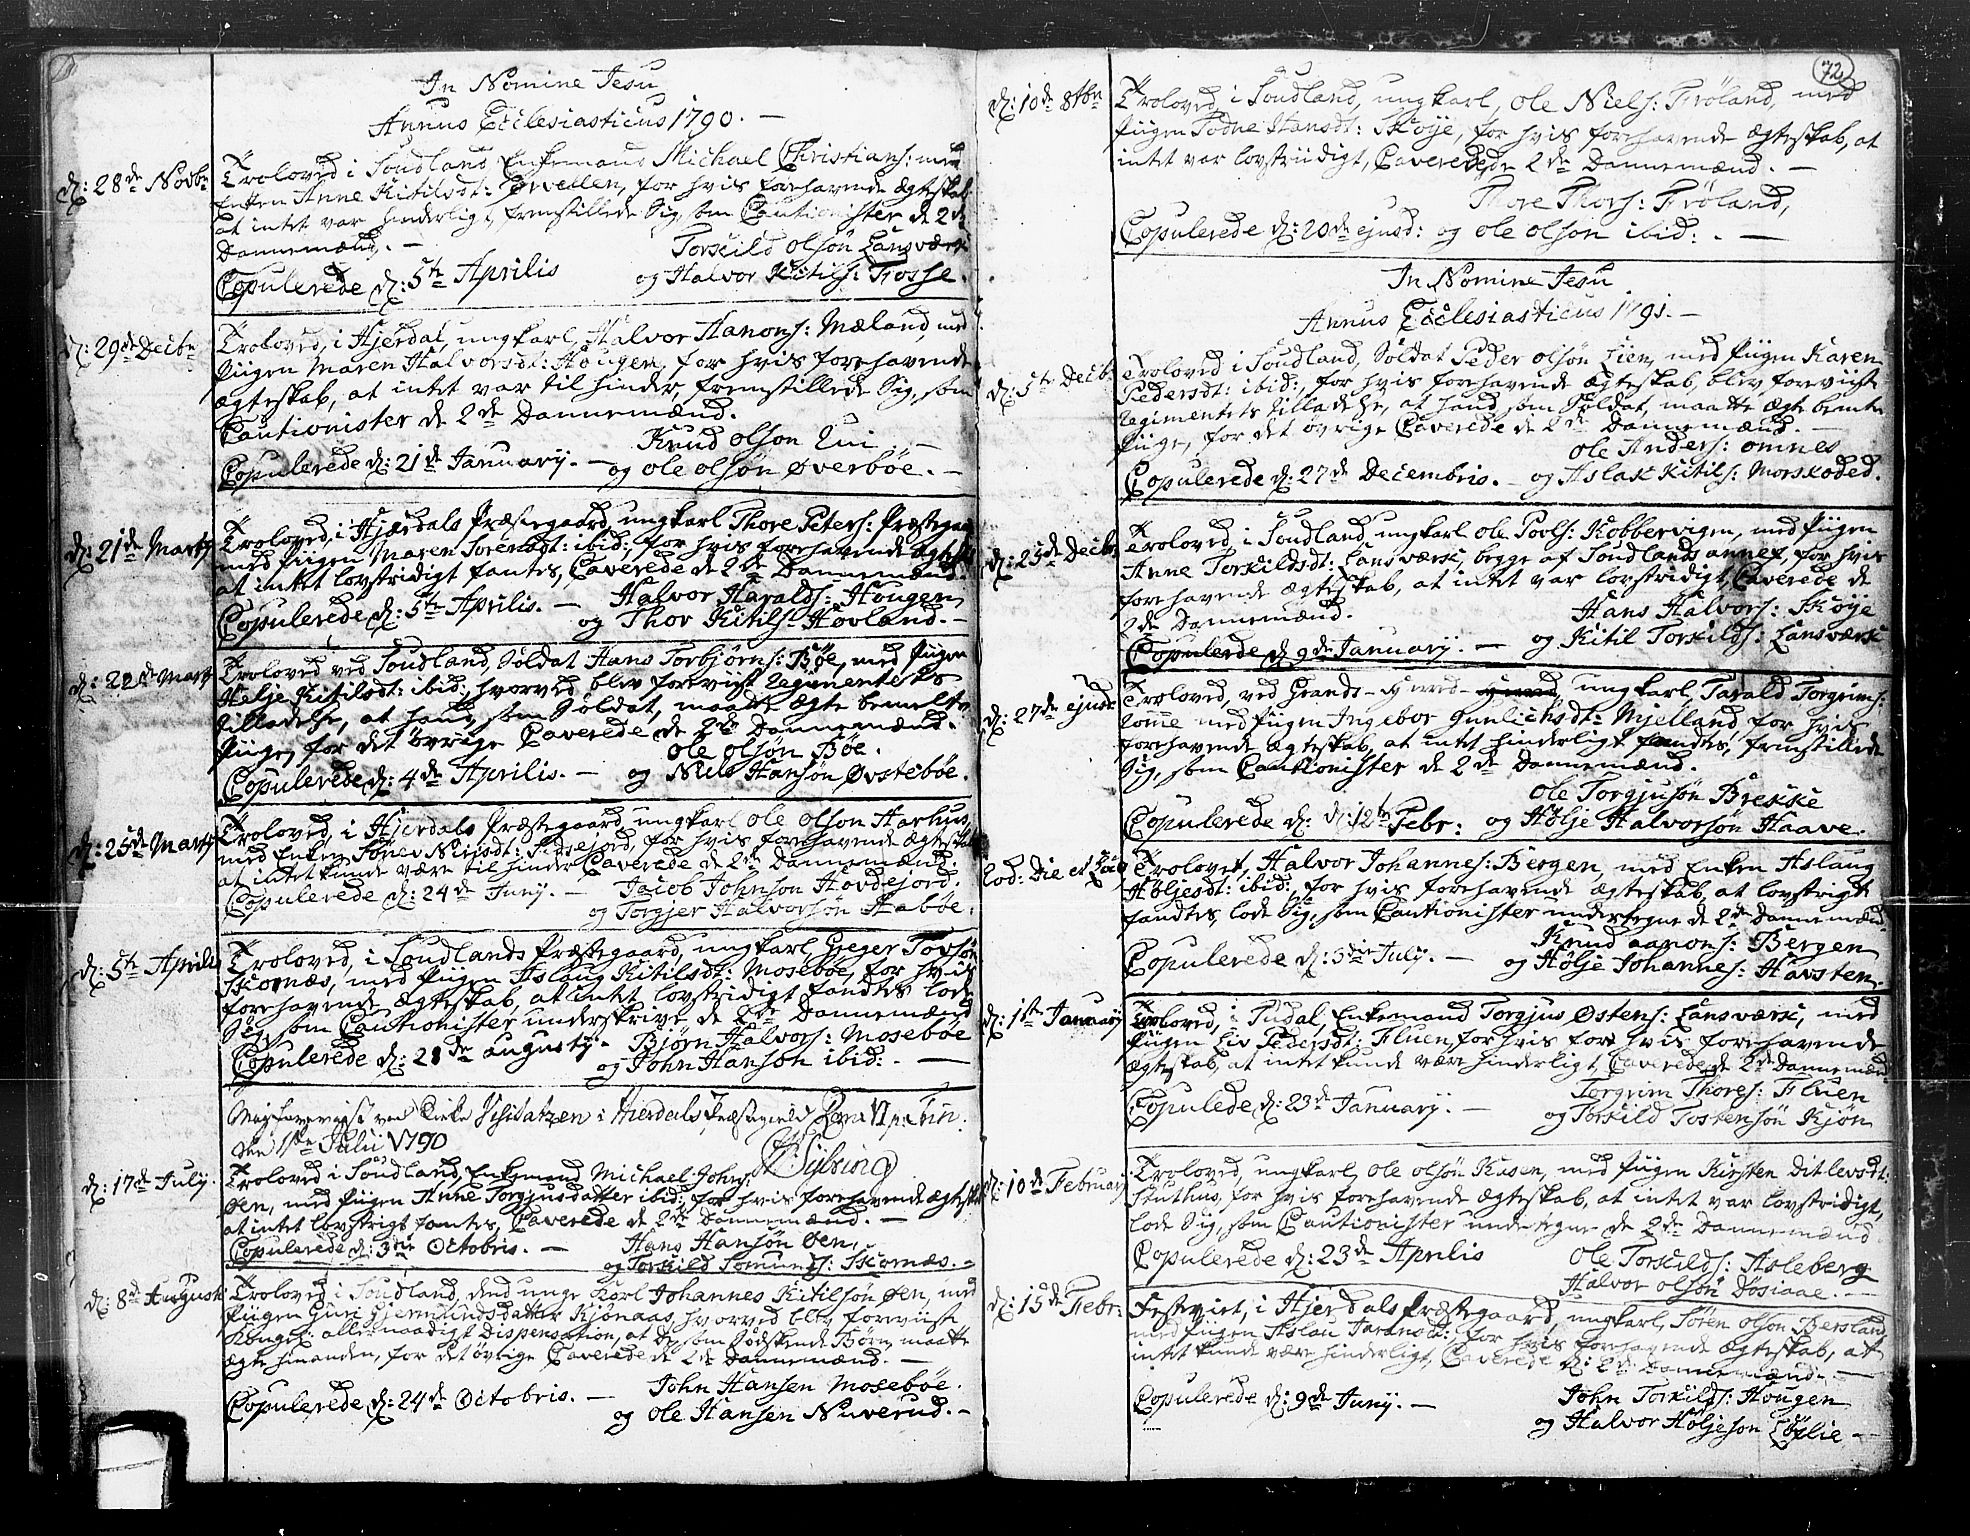 In Nomine Jesu
Annus Ecclesiasticus 1790. —
d: 28de Novbr
Troloved i Soudland Enkemand Michael Christians: med
Enken Anne Kitilsdt: Ørvellen, for hvis forehavende Ægteskab
at intet var hinderligt, fremstillede Sig, som Cautionister de 2de
Dannemænd. —
Torskild Olsøn Lansværk
Copulerede d: 5te Aprilis
og Halvor Kitils: Frosse.
d: 29de Decbr
Troloved, i Hjerdal, ungkarl, Halvor Hanons: Mæland, med
Pigen Maren Halvorsdt: Hougen, for hvis forehavende
Ægteskab, at intet var til hinder, fremstillede Sig, som
Cautionister de 2de Dannemænd.
Knud Olson Lui. —
Copulerede d: 21de Januarij. —
og Ole Olsøn Øverbøe. —
d: 21de Martij
Troloved, i Hjerdals Præstegaard, ungkarl Thore Peters: Præstegaar
med Pigen Maren Sørensdt: ibid: for hvis forehavende Ægteskab
at intet lovstridigt fantes, Caverede de 2de Dannemænd.
Halvor Haralds: Hougen
Copulerede d: 5te Aprilis. —
og Thor Kitils: Hovland. —
d: 22de Martij
Troloved ved Soudland, Soldat Hans Torbjørns: Bøe, med Pigen
Helje Kitilsdt: ibid:, hvorved blev foreviist Regimentets
tilladelse, at hand, som Soldat, maatte ægte bemelte
Pige, for det øvrige Caverede de 2de Dannemænd.
Ole Olsøn Bøe.
Copulerede d: 4de Aprilis. —
og Niels Hansøn Øvstebøe.
d: 25de Martij
Troloved, i Hjerdals Præstegaard, ungkarl Ole Olson Harhus,
med Enken Sønev Nirisdt: for hvis forehavende Ægteskab
at intet kunde være til hinder Caverede de 2de Dannemænd.
Jacob Johnson Hovdejord.
Copulerede d: 24de Junij. —
og Torgjer Halvorsøn Habøe.
d: 5te Aprilis
Troloved, i Soudlands Præstegaard, ungkarl, Gjeger Tovsøn
Skornæs, med Pigen Aslaug Kitilsdt: Mosebøe, for hvis
forehavende Ægteskab, at intet lovstridigt fandtes lode
Sig, som Cautionister underskrive de 2de Dannemænd
Bjørn Halvors: Mosebøe
Copulerede d: 28de Augusty. —
og John Hansøn ibid: —
ved Kirke Visitatzen i Hierdals Præstegield Domi: VI p: Trin:
den 11te Julii 1790
d: 17de July.
Troloved i Soudland, Enkemand Michael Johns:
Øen, med Pigen Anne Torgjusdatter ibid: for hvis forehavende Ægteskab
at intet lovstrigt fantes, Caverede de 2de Dannemænd. —
Hans Hansøn Øen,
Copulerede d: 3die Octobris. —
og Torskild Somunds: Skornæs. —
d: 8de Augusti
Troloved i Soudland, dend unge Karl Johannes Kitilsøn Øen, med
Pigen Guri Gjermundsdatter Kjønaas, hvorved blev foreviist
Kongel: allernaadigt Dispensation, at De, som Sødskende Børn, maatte
ægte hinanden, for det øvrige Caverede de 2de Dannemænd. —
John Hansen Mosebøe.
Copulerede d: 24de Octobris. —
og Ole Hansen Nuverud. —
72
d: 10de 8tbr
Troloved, i Soudland, ungkarl, Ole Niels: Frøland, med
Pigen Todne Hansdt: Skoye, for hvis forehavende Ægteskab, at
intet var lovstridigt, Caverede de 2de Dannemænd. —
Thore Thors: Frøland,
Copulerede d: 20de ejusd: og Ole Olsøn ibid: . —
In Nomine Jesu
Annus Ecclesiasticus 1791. —
d: 5te Decbr
Troloved i Soudland, Soldat Peder Olsøn Lien, med Pigen Karen
Pedersdt: ibid:, for hvis forehavende Ægteskab, blev foreviist
Regimentets tilladelse, at hand, som Soldat, maatte ægte bemte
Pige, for det øvrige Caverede de 2de Dannemænd. —
Ole Anders: Omnes
Copulerede d: 27de Decembris. —
og Aslak Kitils: Morskoded.
d: 25de Decbr
Troloved, i Soudland, ungkarl Ole Povls: Kobbervigen, med Pigen
Anne Torkildsdt: Lansværk, begge af Soudlands annex, for hvis
forehavende Ægteskab, at intet var lovstridigt, Caverede de
2de Dannemænd.
Hans Halvors: Skoye
Copulerede d. 9de Januarij. —
og Kitil Torskilds: Lansværk
d: 27de ejusd:
Troloved, ved Grands-, ungkarl, Tarald Torgrims:
Lomme med Pigen Ingebor Gunlichsdt: Mjelland, for hvis
forehavende Ægteskab, at intet hinderligt fandtes, fremstillede
Sig, som Cautionister de 2de Dannemænd.
Ole Torgjusøn Brekke
Copulerede d: d: 12te Febr:
og Hølje Halvorsøn Haave.
Eod: Die et Loco
Trolovet, Halvor Johannes: Bergen, med Enken Aslaug
Høljesdt: ibid:, for hvis forehavende Ægteskab, at lovstrigt
fandtes, lode Sig, som Cautionister undertegne de 2de Dannemænd
Knud Aanons: Bergen
Copulerede d: 3die July. —
og Hølje Johannes: Havsten.
d: 1ste Januarij
Troloved, i Tudal, Enkemand Torgjus Østens: Lansværk, med
Pigen Liv Pedersdt: Fluen, for hvis for hvis forehavende
Ægteskab, at intet kunde være hinderligt, Caverede de 2de Dannemænd
Torgrim Thores: Fluen
Copulede d: 23de Januarij. —
og Torskild Tostensøn Kjøn
d: 10de Februarij
Troloved, ungkarl, Ole Olsøn Kasen, med Pigen Kirsten Ditlevsdt:
Huthus, for hvis forehavende Ægteskab, at intet var lovstridigt,
lode Sig, som Cautionister undertegne de 2de Dannemænd.
Copulerede d: 23de Aprilis
Ole Torskilds: Asleberg
Halvor Olsøn Døsiaae. —
d: 15de Febr.
Festviet, i Hjerdals Præstegaard, ungkarl, Søren Olson Bersland
med Pigen Aslau for hvis forehavende Ægteskab, at
intet kunde være hinderligt, Caverede d: 2de Dannemænd. —
John Torkilds: Hougen
Copulerede d: 9de Junij. —
og Halvor Høljeson Løvlie —